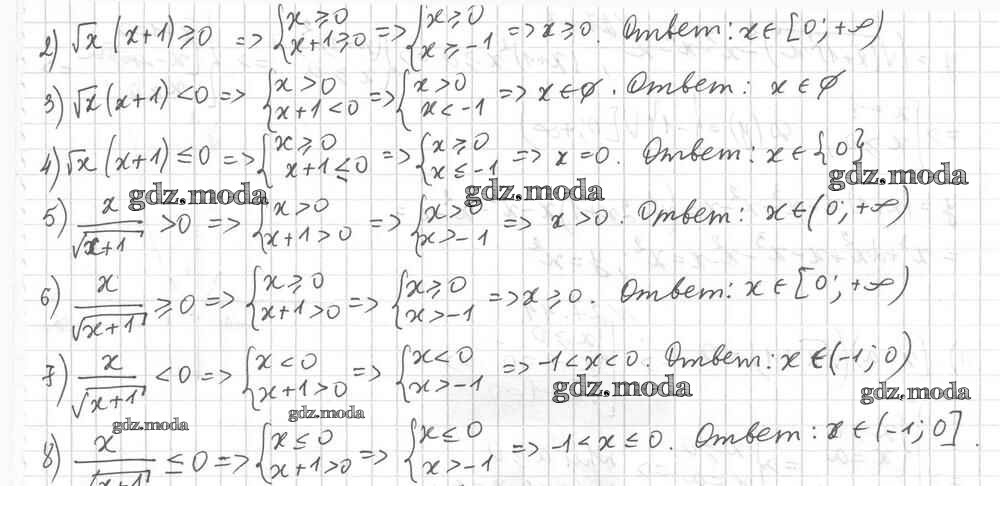 2) √x (x+1) ≥ 0 => { x ≥ 0 x+1 ≥ 0 => { x ≥ 0 x ≥ -1 => x ≥ 0. Ответ: x ∈ [0; +∞)
3) √x (x+1) < 0 => { x > 0 x+1 < 0 => { x > 0 x < -1 => x ∈ ∅. Ответ: x ∈ ∅
4) √x (x+1) ≤ 0 => { x ≥ 0 x+1 ≤ 0 => { x ≥ 0 x ≤ -1 => x = 0. Ответ: x ∈ {0}
gdz.moda gdz.moda gdz.moda
5) x/√(x+1) > 0 => { x > 0 x+1 > 0 => { x > 0 x > -1 => x > 0. Ответ: x ∈ (0; +∞)
6) x/√(x+1) ≥ 0 => { x ≥ 0 x+1 > 0 => { x ≥ 0 x > -1 => x ≥ 0. Ответ: x ∈ [0; +∞)
7) x/√(x+1) < 0 => { x < 0 x+1 > 0 => { x < 0 x > -1 => -1 < x < 0. Ответ: x ∈ (-1; 0)
gdz.moda gdz.moda
gdz.moda gdz.moda
8) x/√(x+1) ≤ 0 => { x ≤ 0 x+1 > 0 => { x ≤ 0 x > -1 => -1 < x ≤ 0. Ответ: x ∈ (-1; 0].